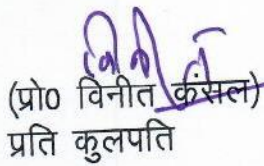 (प्रो0 विनीत कंसल)
प्रति कुलपति